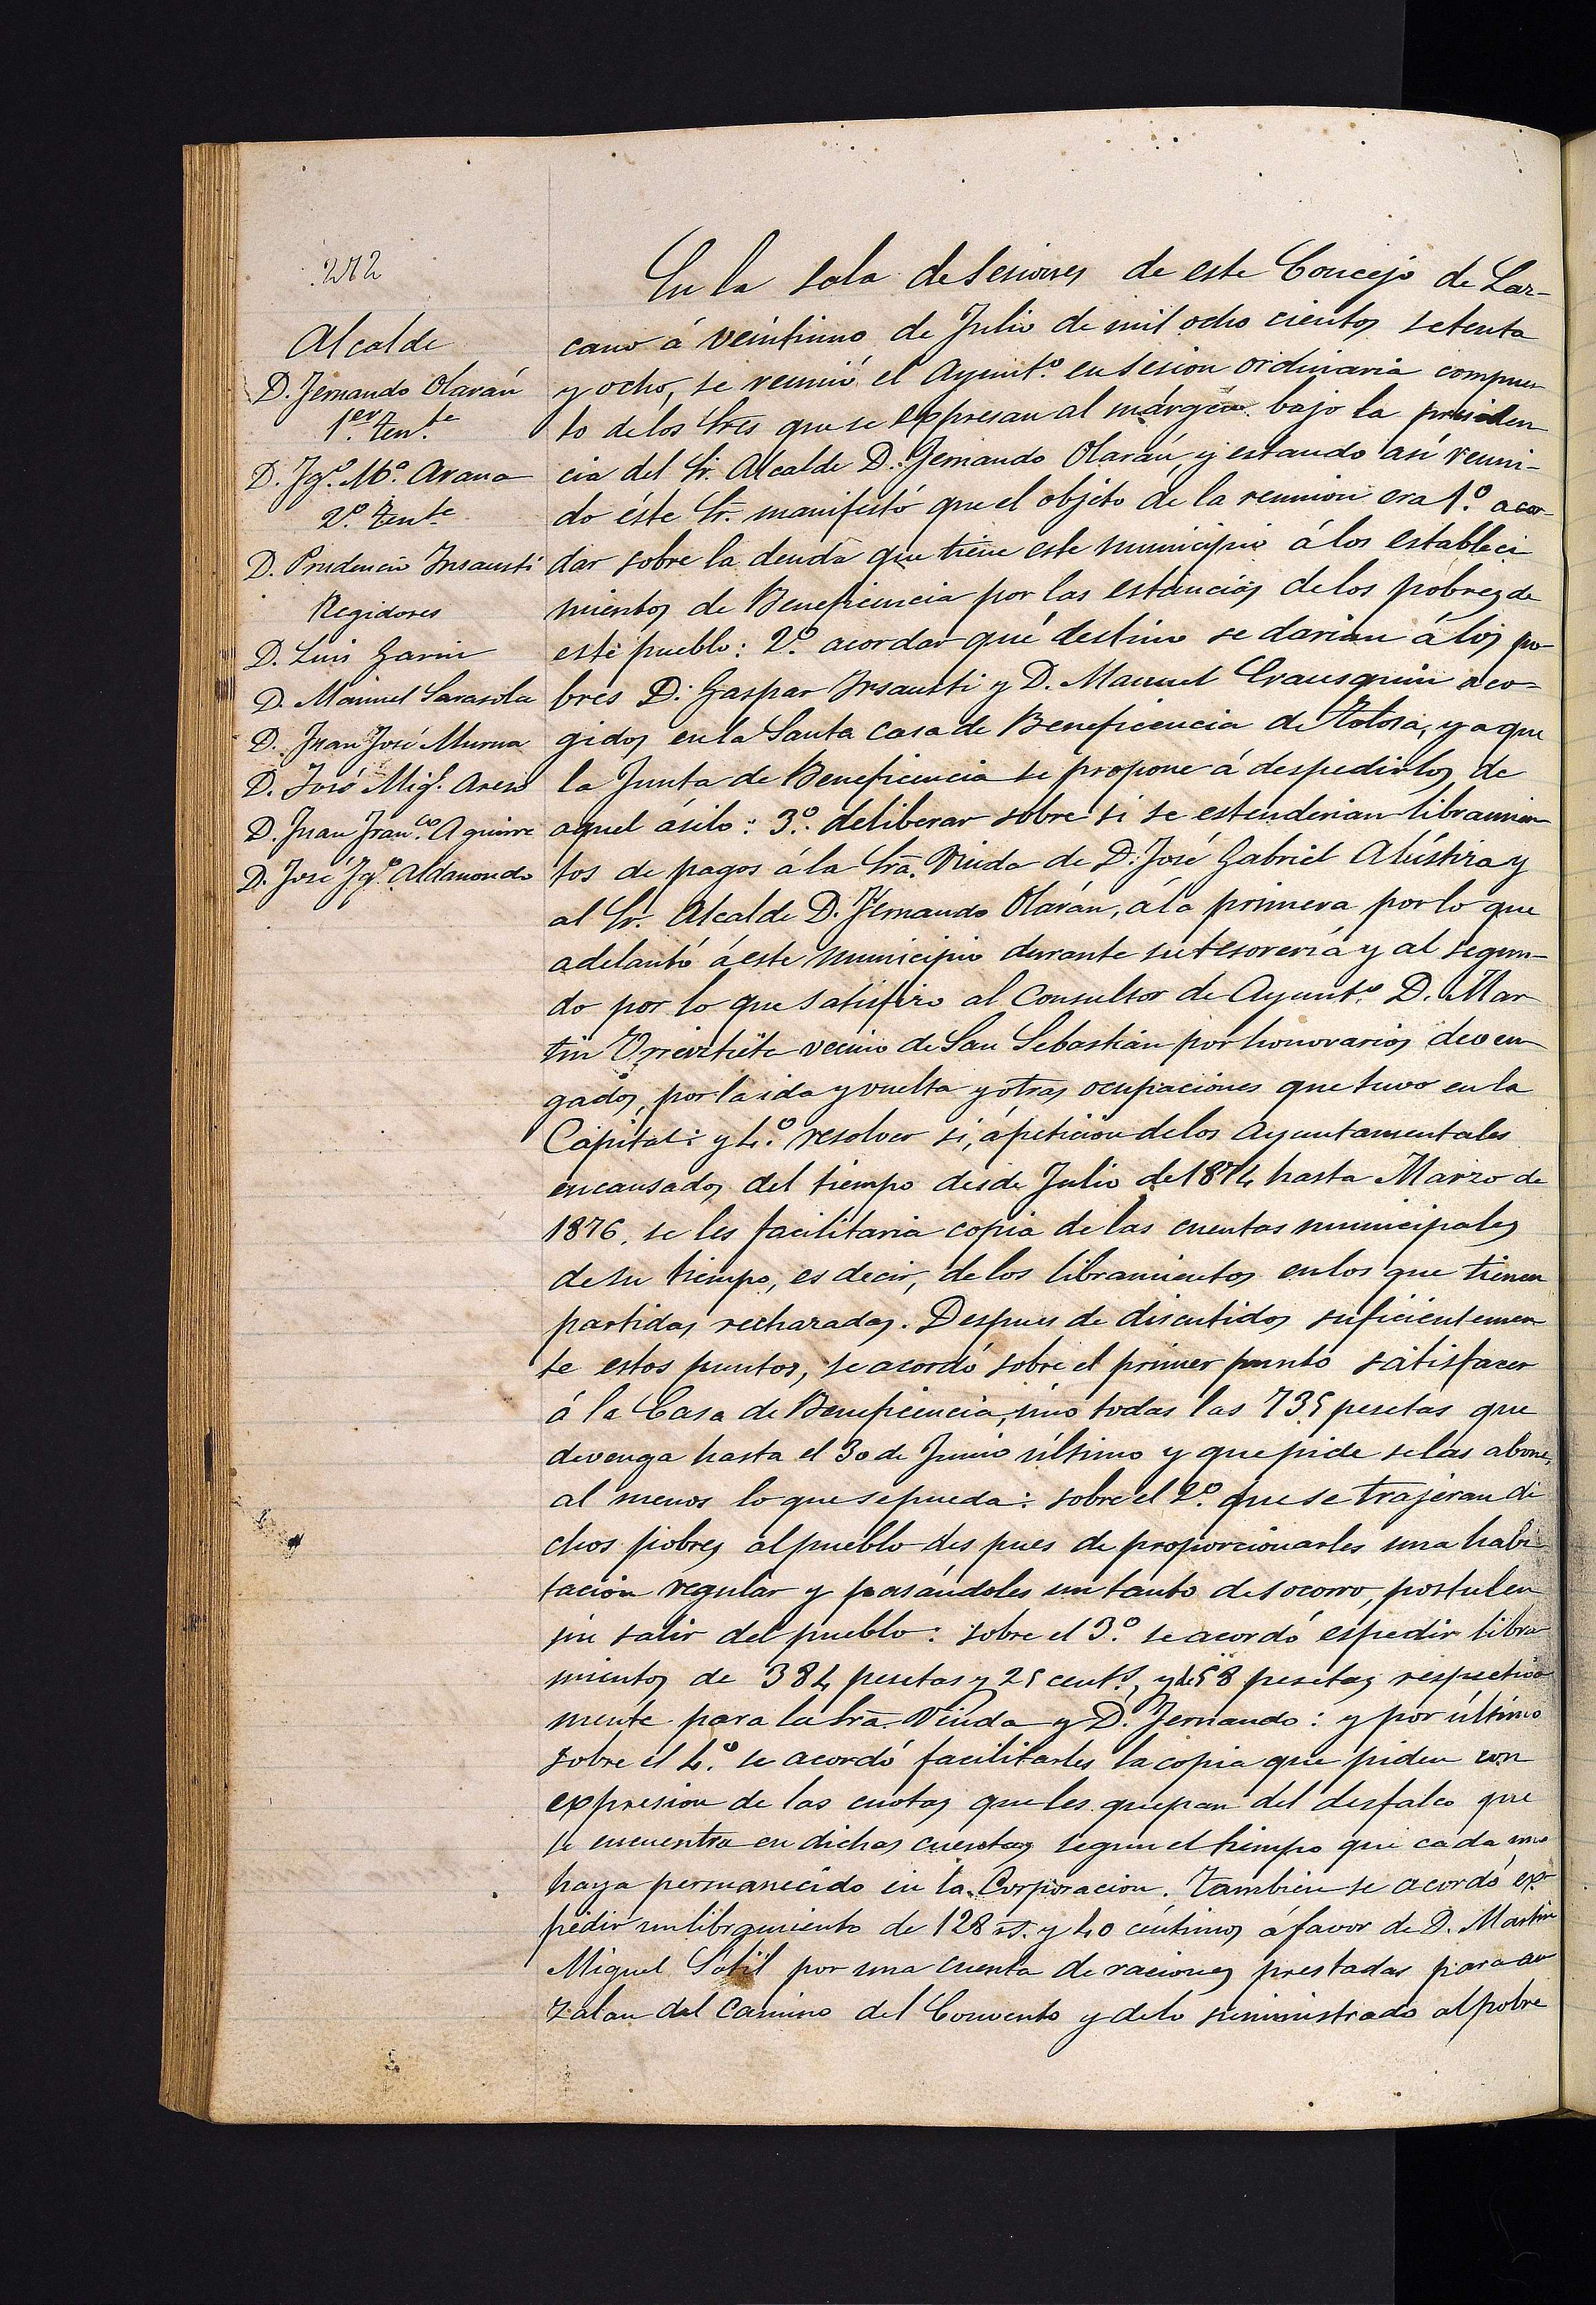 272
Alcalde
D. Fernando Olarán
1er. Tente
D. Igo. Mo. Arana
2o. Tente
D. Prudencio Insausti
Regidores
D. Luis Garin
D. Manuel Sarasola
D. Juan José Murua
D. José Migl. Areso
D. Juan Franco. Aguirre
D. José Igo. Aldanondo
En la sala de Sesiones de este Concejo de Laz-
cano á veintiuno de Julio de mil ocho cientos setenta
y ocho, se reunió el Ayunto. en sesion ordinaria compues
to de los Sres que se expresan al márgen bajo la presiden
cia del Sr. Alcalde D. Fernando Olarán y estando así reuni-
do éste Sr. manifestó que el objeto de la reunion era 1o. acor-
dar sobre la deuda que tiene este municipio á los estableci
mientos de Beneficencia por las estancias de los pobres de
este pueblo: 2o. acordar qué destino se darian á los po-
bres D. Gaspar Insausti y D. Manuel Erausquin aco-
gidos en la Santa casa de Beneficencia de Tolosa, ya que
la Junta de Beneficencia se propone á despedirlos de
aquel ásilo: 3o. deliberar sobre si se estenderian libramien
tos de pagos á la Sra. Viuda de D. José Gabriel Alústiza y
al Sr. Alcalde D. Fernando Olarán, á la primera por lo que
adelantó á este municipio durante su tesorería y al segun-
do por lo que satisfizo al Consultor de Ayunto. D. Mar
tin Urreiztieta vecino de San Sebastián por honorarios deven
gados, por la ida y vuelta y otras ocupaciones que tuvo en la
Capital: y 4o. resolver si, á peticion de los Ayuntamentales
encausados del tiempo desde Julio de 1874 hasta Marzo de
1876, se les facilitaria copia de las cuentas municipales
de su tiempo, es decir, de los libramientos en los que tienen
partidas rechazadas. Despues de discutidos suficientemen
te estos puntos, se acordó sobre el primer punto satisfacer
á la Casa de Beneficencia, sino todas las 735 pesetas que
devenga hasta el 30 de Junio último y que pide se las abone,
al menos lo que se pueda: sobre el 2o. que se trajeran di
chos pobres al pueblo des pues de proporcionarles una habi
tación regular y pasándoles un tanto de socorro, postulen
sin salir del pueblo: sobre el 3o. se acordó espedir libra
mientos de 384 pesetas y 25 cents. y 458 pesetas respectiva
mente para la Sra. Viuda y D. Fernando: y por último
sobre el 4o. se acordó facilitarles la copia que piden con
expresion de las cuotas que les quepan del desfalco que
se encuentra en dichas cuentas segun el tiempo que cada uno
haya permanecido en la Corporacion. Tambien se acordó ex-
pedir un libramiento de 128 rs. y 40 céntimos á favor de D. Martin
Miguel Sotil por una cuenta de raciones prestadas para au
zalan del Camino del Convento y de lo suministrado al pobre